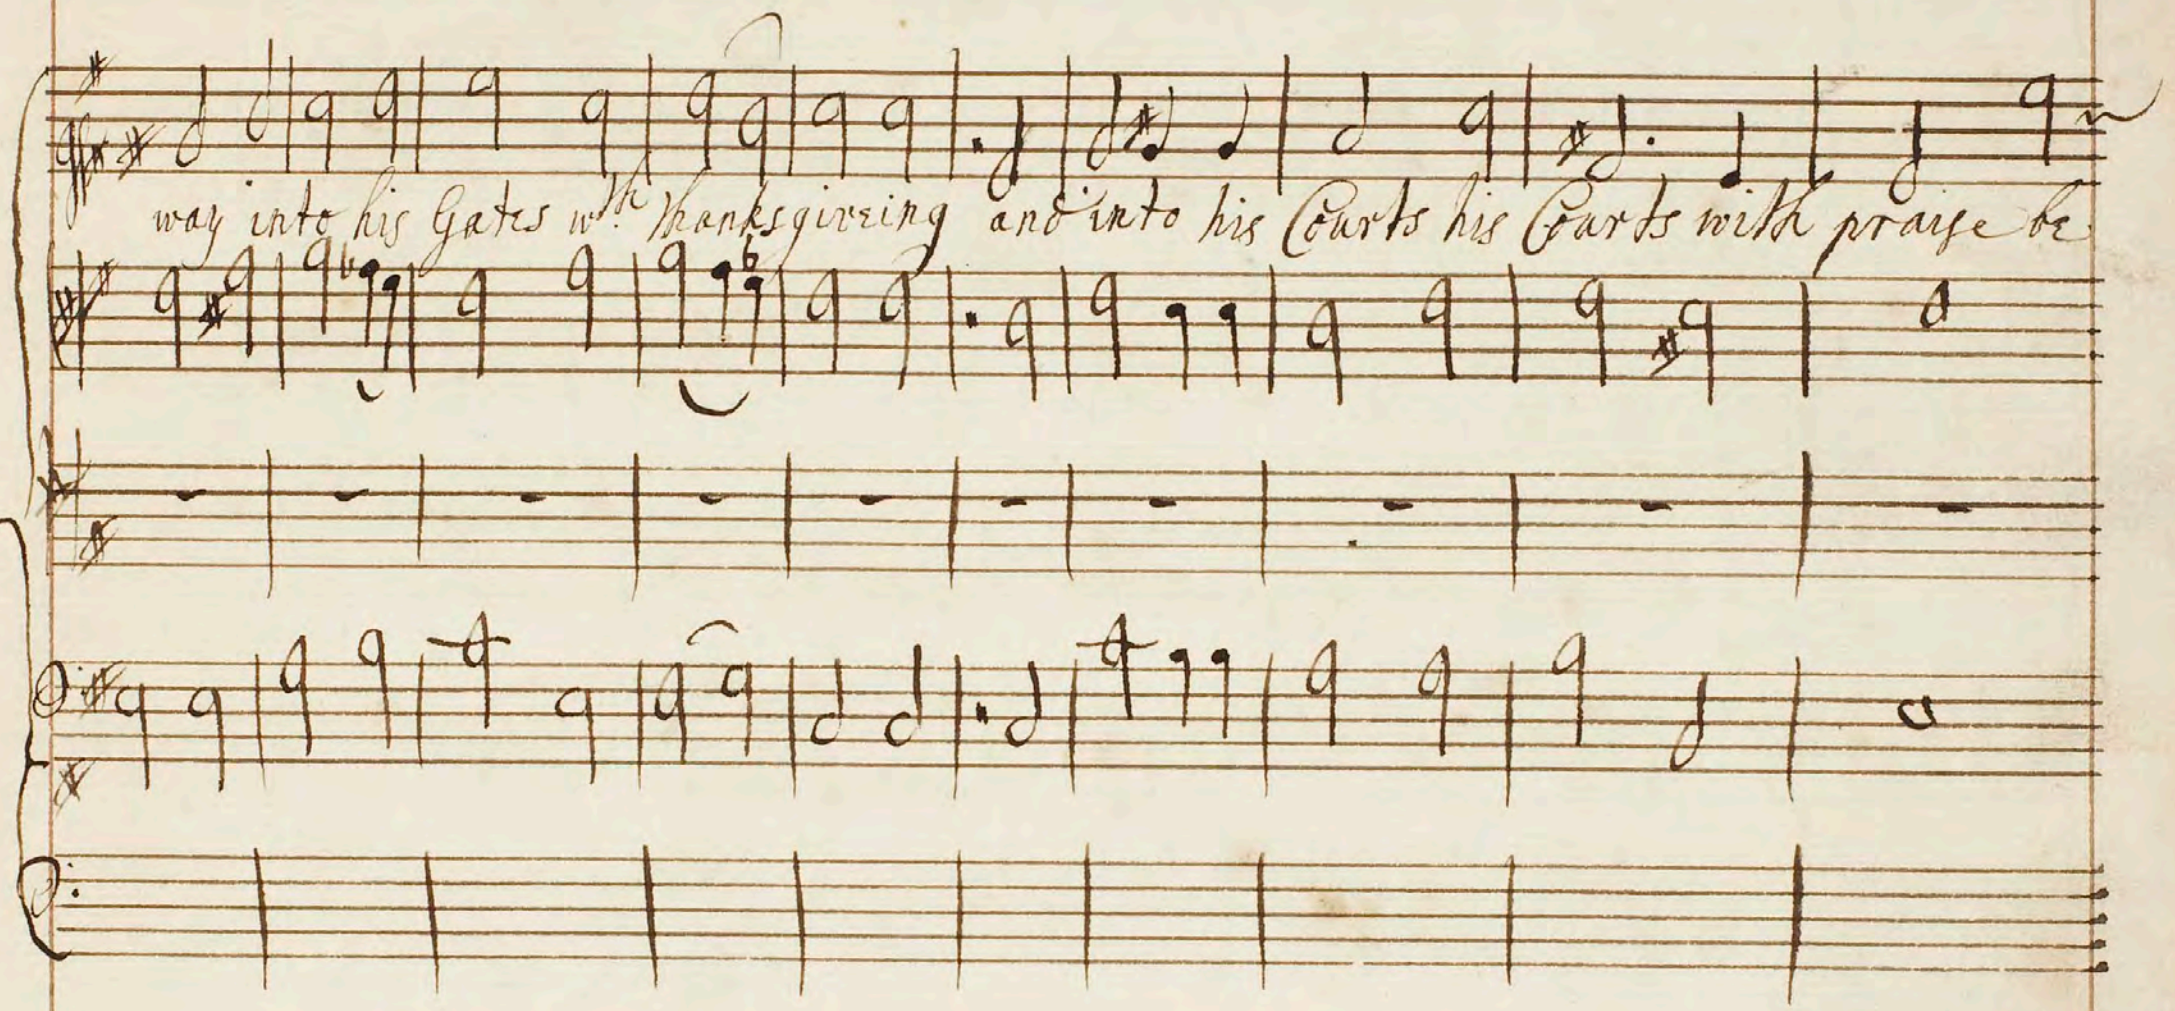 way into his Gates wth. thanksgiveing and into his Courts his Courts with praise be